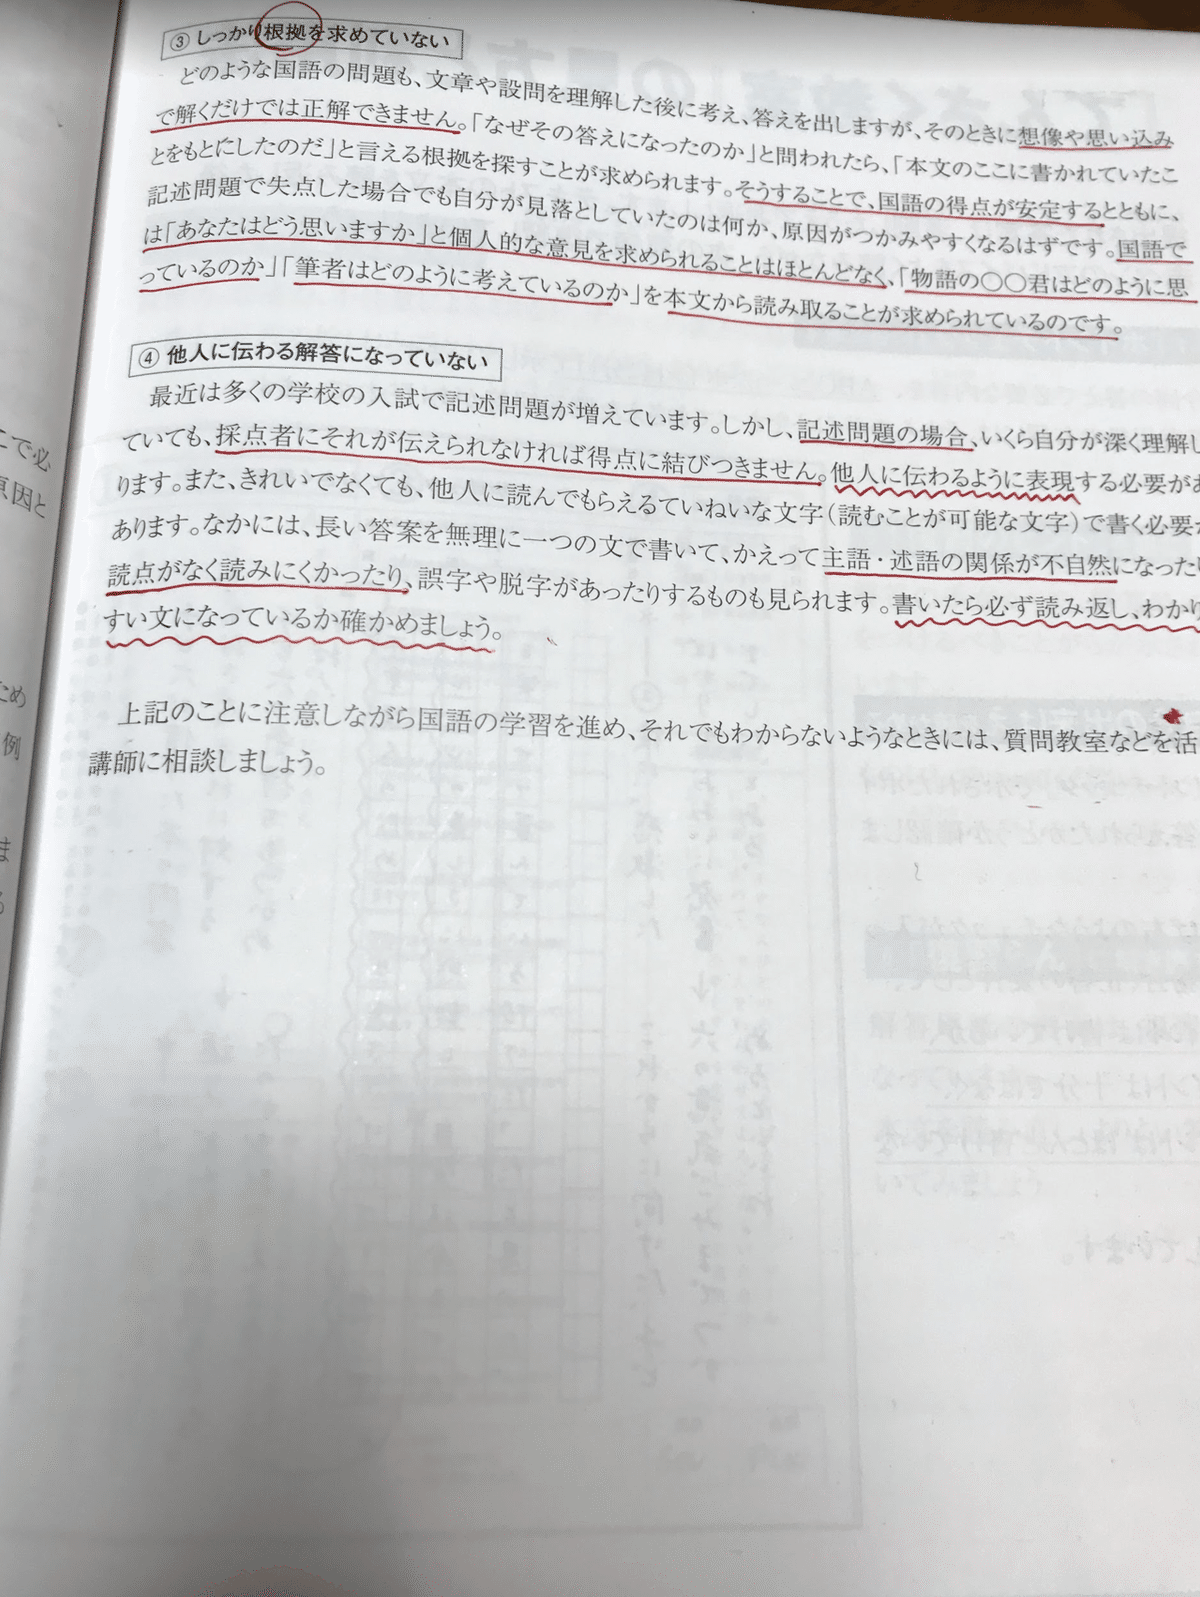 ③ しっかり根拠を求めていない
どのような国語の問題も、文章や設問を理解した後に考え、答えを出しますが、そのときに想像や思い込み
で解くだけでは正解できません。「なぜその答えになったのか」と問われたら、「本文のここに書かれていたこ
とをもとにしたのだ」と言える根拠を探すことが求められます。そうすることで、国語の得点が安定するとともに、
記述問題で失点した場合でも自分が見落としていたのは何か、原因がつかみやすくなるはずです。国語で
は「あなたはどう思いますか」と個人的な意見を求められることはほとんどなく、「物語の〇〇君はどのように思
っているのか」「筆者はどのように考えているのか」を本文から読み取ることが求められているのです。
④ 他人に伝わる解答になっていない
最近は多くの学校の入試で記述問題が増えています。しかし、記述問題の場合、いくら自分が深く理解し
ていても、採点者にそれが伝えられなければ得点に結びつきません。他人に伝わるように表現する必要があ
ります。また、きれいでなくても、他人に読んでもらえるていねいな文字（読むことが可能な文字）で書く必要が
あります。なかには、長い答案を無理に一つの文で書いて、かえって主語・述語の関係が不自然になったり
読点がなく読みにくかったり、誤字や脱字があったりするものも見られます。書いたら必ず読み返し、わかり
すい文になっているか確かめましょう。
上記のことに注意しながら国語の学習を進め、それでもわからないようなときには、質問教室などを活
講師に相談しましょう。
こで必
原因と
ため
例
ま